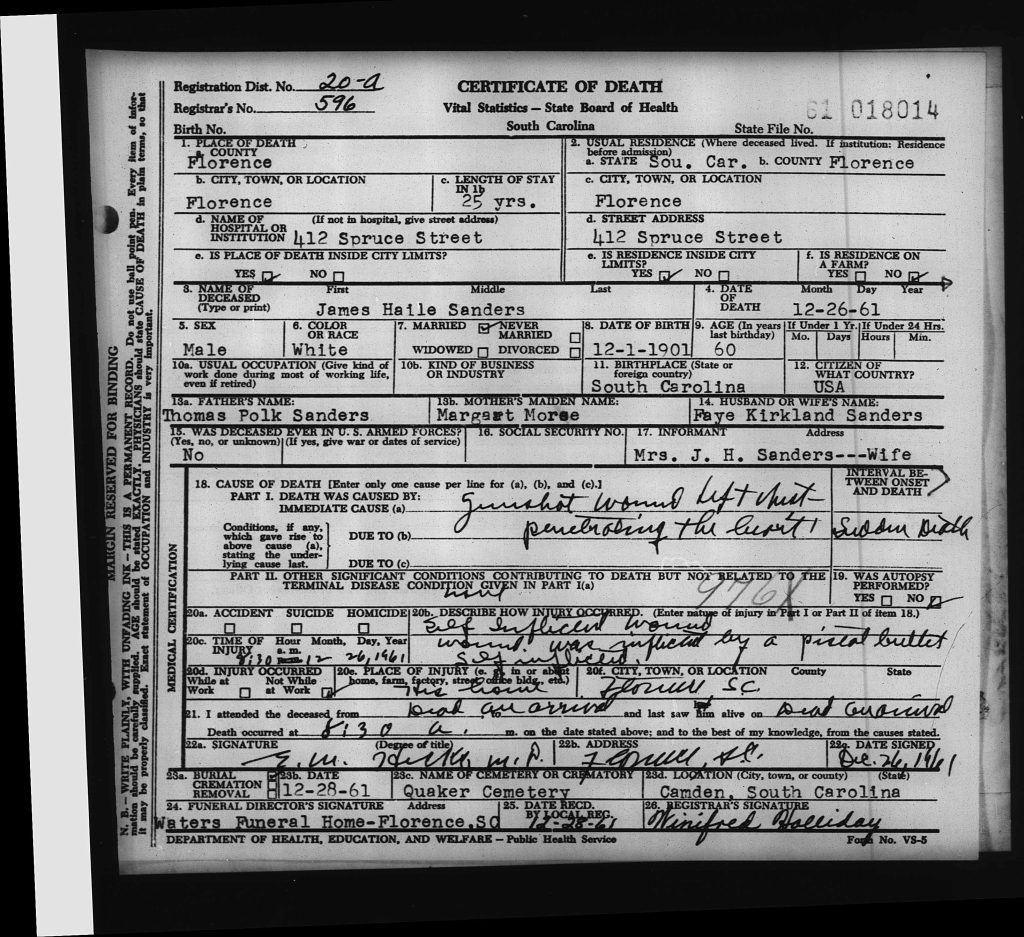 Registration Dist. No. 20-A
CERTIFICATE OF DEATH
Registrar's No. 596
Vital Statistics — State Board of Health
61 018014
Birth No.
South Carolina
State File No.
1. PLACE OF DEATH
a. COUNTY
Florence
2. USUAL RESIDENCE (Where deceased lived. If institution: Residence before admission)
a. STATE Sou. Car. b. COUNTY Florence
b. CITY, TOWN, OR LOCATION
Florence
c. LENGTH OF STAY IN 1b
25 yrs.
c. CITY, TOWN, OR LOCATION
Florence
d. NAME OF HOSPITAL OR INSTITUTION (If not in hospital, give street address)
412 Spruce Street
d. STREET ADDRESS
412 Spruce Street
e. IS PLACE OF DEATH INSIDE CITY LIMITS?
YES NO
e. IS RESIDENCE INSIDE CITY LIMITS?
YES NO
f. IS RESIDENCE ON A FARM?
YES NO
3. NAME OF DECEASED (Type or print)
First Middle Last
James Haile Sanders
4. DATE OF DEATH
Month Day Year
12-26-61
5. SEX
Male
6. COLOR OR RACE
White
7. MARRIED NEVER MARRIED
WIDOWED DIVORCED
8. DATE OF BIRTH
12-1-1901
9. AGE (In years last birthday)
60
If Under 1 Yr.
Mo. Days
If Under 24 Hrs.
Hours Min.
10a. USUAL OCCUPATION (Give kind of work done during most of working life, even if retired)
10b. KIND OF BUSINESS OR INDUSTRY
11. BIRTHPLACE (State or foreign country)
South Carolina
12. CITIZEN OF WHAT COUNTRY?
USA
13a. FATHER'S NAME:
Thomas Polk Sanders
13b. MOTHER'S MAIDEN NAME:
Margaet Morse
14. HUSBAND OR WIFE'S NAME:
Faye Kirkland Sanders
15. WAS DECEASED EVER IN U. S. ARMED FORCES?
(Yes, no, or unknown) (If yes, give war or dates of service)
No
16. SOCIAL SECURITY NO.
17. INFORMANT Address
Mrs. J. H. Sanders---Wife
18. CAUSE OF DEATH [Enter only one cause per line for (a), (b), and (c).]
INTERVAL BETWEEN ONSET AND DEATH
PART I. DEATH WAS CAUSED BY:
IMMEDIATE CAUSE (a) Gunshot wound left chest
Conditions, if any, which gave rise to above cause (a), stating the underlying cause last.
DUE TO (b) penetrating the heart Sudden Death
DUE TO (c)
PART II. OTHER SIGNIFICANT CONDITIONS CONTRIBUTING TO DEATH BUT NOT RELATED TO THE TERMINAL DISEASE CONDITION GIVEN IN PART I(a)
none
976X
19. WAS AUTOPSY PERFORMED?
YES NO
20a. ACCIDENT SUICIDE HOMICIDE
20b. DESCRIBE HOW INJURY OCCURRED. (Enter nature of injury in Part I or Part II of item 18.)
Self Inflicted wound
wound was inflicted by a pistol bullet
Self inflicted.
20c. TIME OF INJURY Hour Month, Day, Year
a. m.
p. m.
8:30 12 26, 1961
20d. INJURY OCCURRED
While at Work Not while at Work
20e. PLACE OF INJURY (e. g., in or about home, farm, factory, street, office bldg., etc.)
His home
20f. CITY, TOWN, OR LOCATION County State
Florence SC
21. I attended the deceased from Dead on arrival, to and last saw him alive on Dead on arrival
Death occurred at 8:30 a. m. on the date stated above; and to the best of my knowledge, from the causes stated.
22a. SIGNATURE (Degree of title)
E. M. Hicks, M.D.
22b. ADDRESS
Florence, S.C.
22c. DATE SIGNED
Dec. 26, 1961
23a. BURIAL
CREMATION
REMOVAL
23b. DATE
12-28-61
23c. NAME OF CEMETERY OR CREMATORY
Quaker Cemetery
23d. LOCATION (City, town, or county) (State)
Camden, South Carolina
24. FUNERAL DIRECTOR'S SIGNATURE Address
Waters Funeral Home-Florence,SC
25. DATE RECD. BY LOCAL REG.
12-28-61
26. REGISTRAR'S SIGNATURE
Winifred Holliday
DEPARTMENT OF HEALTH, EDUCATION, AND WELFARE — Public Health Service
Form No. VS-5
MEDICAL CERTIFICATION
MARGIN RESERVED FOR BINDING
N. B. — WRITE PLAINLY, WITH UNFADING INK — THIS IS A PERMANENT RECORD. Do not use ball point pen. Every item of information should be carefully supplied. AGE should be stated EXACTLY. PHYSICIANS should state CAUSE OF DEATH in plain terms, so that it may be properly classified. Exact statement of OCCUPATION and INDUSTRY is very important.